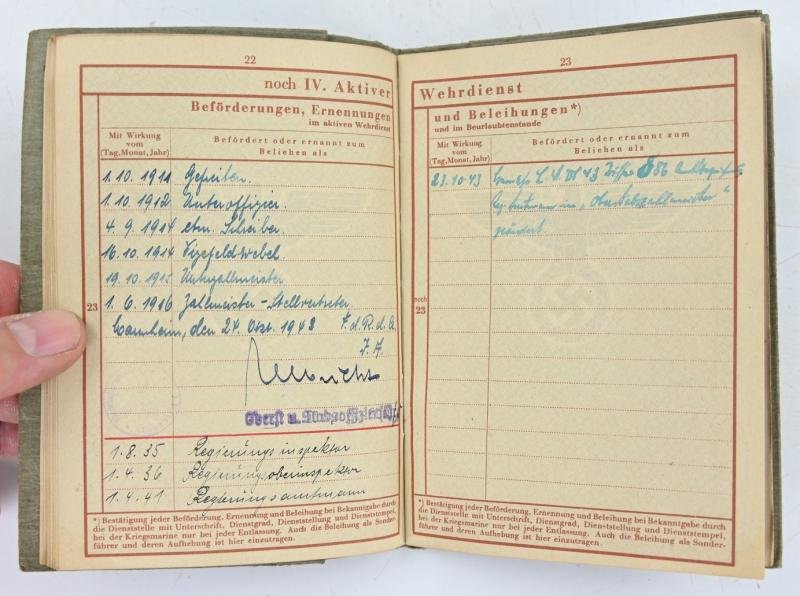 22
noch IV. Aktiver
Beförderungen, Ernennungen
im aktiven Wehrdienst
Mit Wirkung
vom
(Tag, Monat, Jahr)
Befördert oder ernannt zum
Beliehen als
1.10.1911 Gefreiten.
1.10.1912 Unteroffizier.
4.9.1914 etm. Schreiber.
16.10.1914 Vizefeldwebel.
19.10.1915 Unterzallmeister
1.6.1916 Zallmeister-Stellvertreter.
23
Mannheim, den 24. Okt. 1943 F.d.R.d.A.
J.A.
Oberst u.
1.8.35 Regierungsinspektor
1.4.36 Regierungsoberinspektor
1.4.41 Regierungsamtmann
*) Bestätigung jeder Beförderung, Ernennung und Beleihung bei Bekanntgabe durch
die Dienststelle mit Unterschrift, Dienstgrad, Dienststellung und Dienststempel,
bei der Kriegsmarine nur bei jeder Entlassung. Auch die Beleihung als Sonder-
führer und deren Aufhebung ist hier einzutragen.
23
Wehrdienst
und Beleihungen*)
und im Beurlaubtenstande
Mit Wirkung
vom
(Tag, Monat, Jahr)
Befördert oder ernannt zum
Beliehen als
23.10.43 43 Ziffer 586
in „Oberstabszallmeister"
geändert.
noch
23
*) Bestätigung jeder Beförderung, Ernennung und Beleihung bei Bekanntgabe durch
die Dienststelle mit Unterschrift, Dienstgrad, Dienststellung und Dienststempel,
bei der Kriegsmarine nur bei jeder Entlassung. Auch die Beleihung als Sonder-
führer und deren Aufhebung ist hier einzutragen.